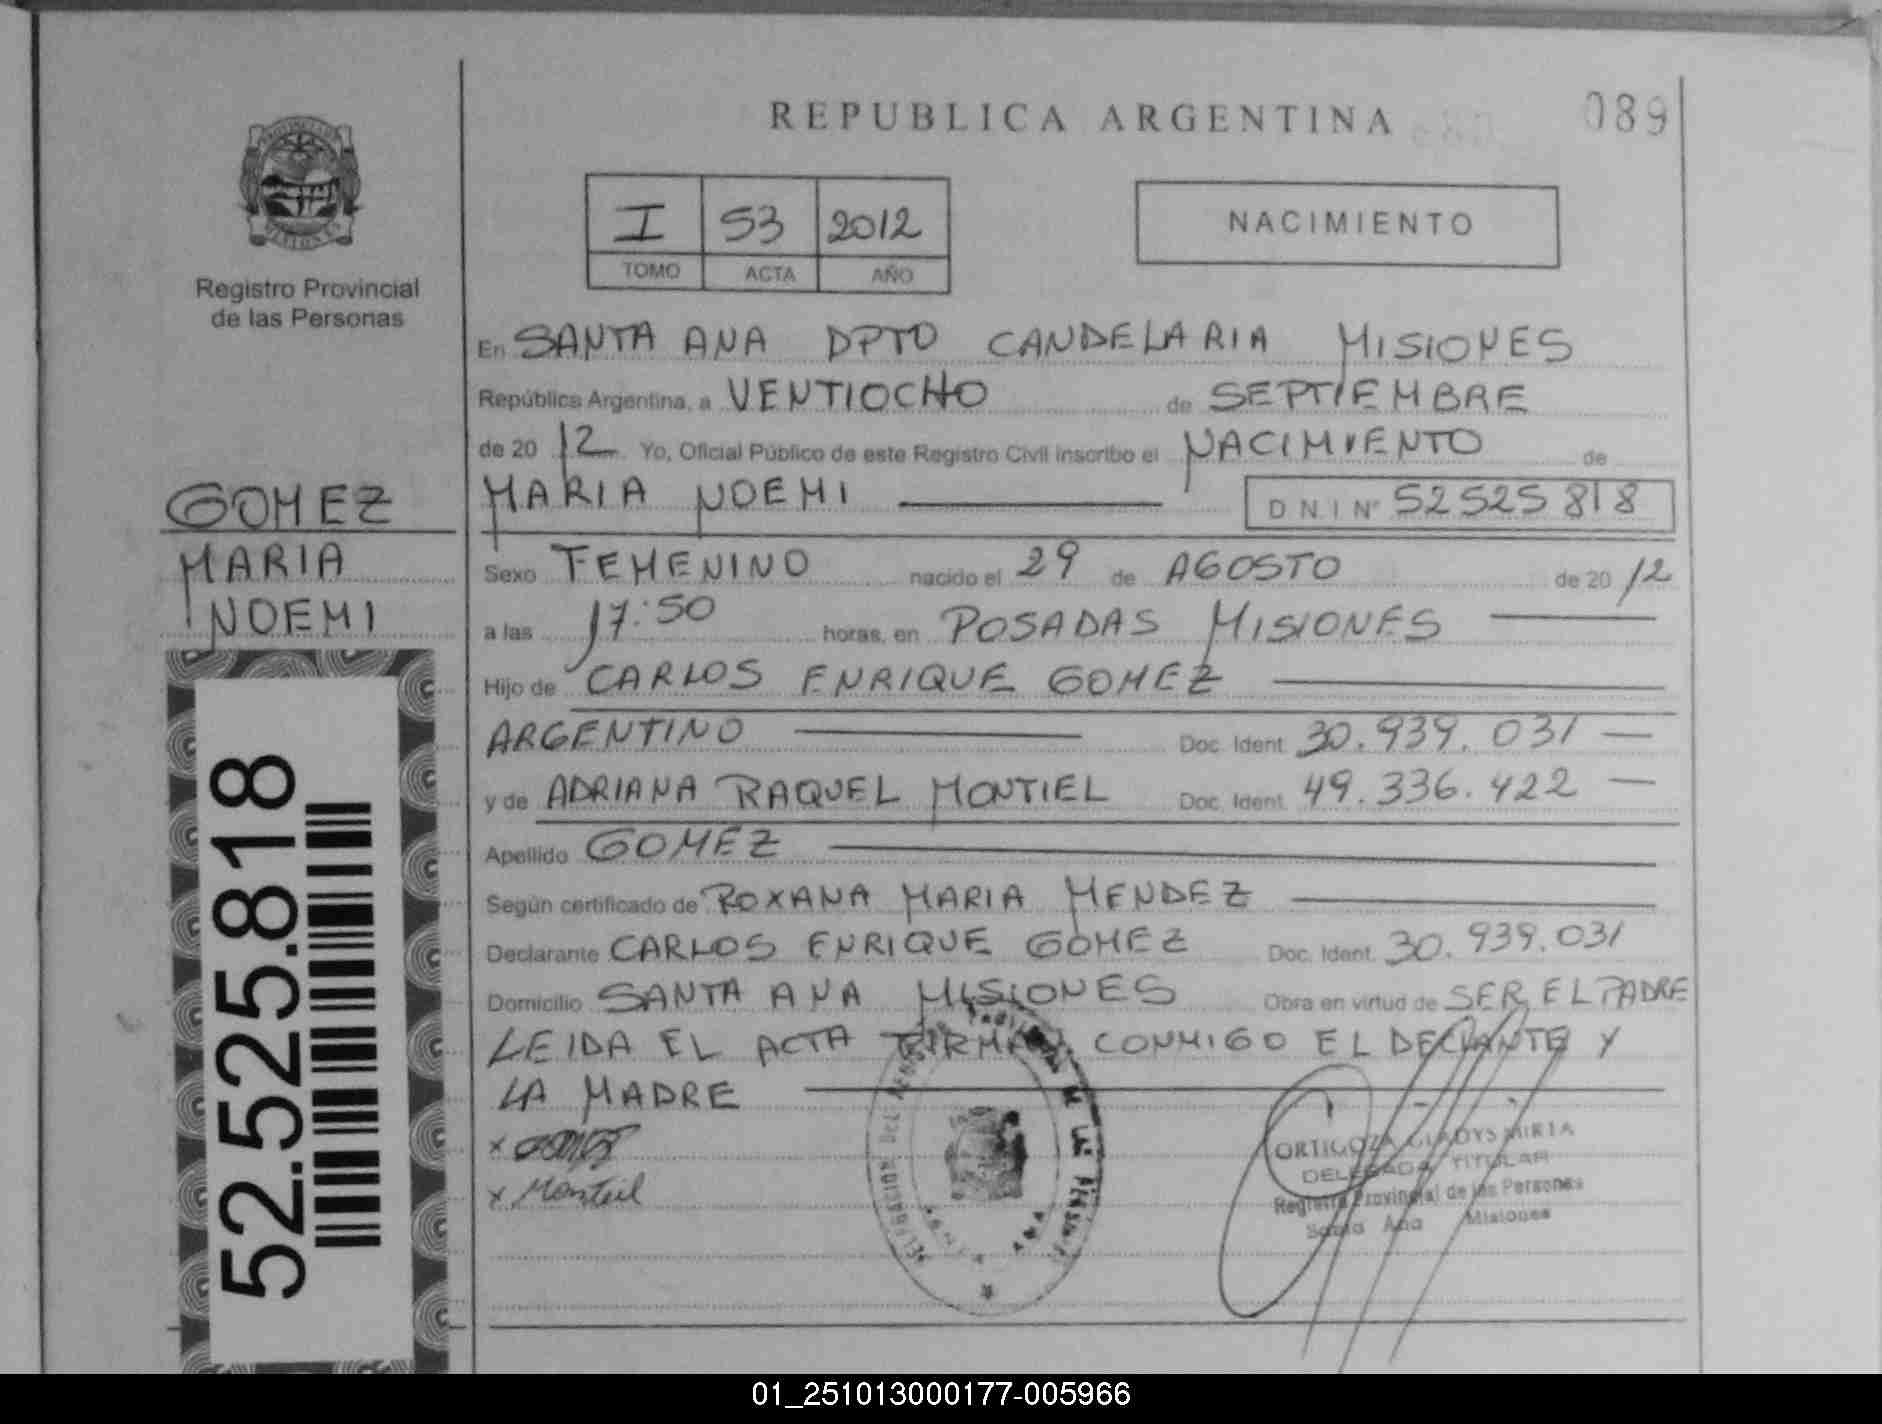 REPUBLICA ARGENTINA
089
PROVINCIA DE
MISIONES
Registro Provincial
de las Personas
I 53 2012
TOMO ACTA AÑO
NACIMIENTO
En SANTA ANA DPTO CANDELARIA MISIONES
República Argentina, a VENTIOCHO de SEPTIEMBRE
de 20 12 Yo, Oficial Público de este Registro Civil inscribo el NACIMIENTO de
MARIA NOEMI D N I Nº 52525818
GOMEZ
MARIA
NOEMI
Sexo FEMENINO nacido el 29 de AGOSTO de 20 12
a las 17:50 horas, en POSADAS MISIONES
Hijo de CARLOS ENRIQUE GOMEZ
ARGENTINO Doc. Ident. 30.939.031
y de ADRIANA RAQUEL MONTIEL Doc. Ident. 49.336.422
Apellido GOMEZ
Según certificado de ROXANA MARIA MENDEZ
Declarante CARLOS ENRIQUE GOMEZ Doc. Ident. 30.939.031
Domicilio SANTA ANA MISIONES Obra en virtud de SER EL PADRE
LEIDA EL ACTA FIRMAN CONMIGO EL DECLANTE Y
LA MADRE
x
x Montiel
ORTIGOZA GLADYS MIRIA
DELEGADA TITULAR
Registro Provincial de las Personas
Santa Ana Misiones
52.525.818
01_251013000177-005966